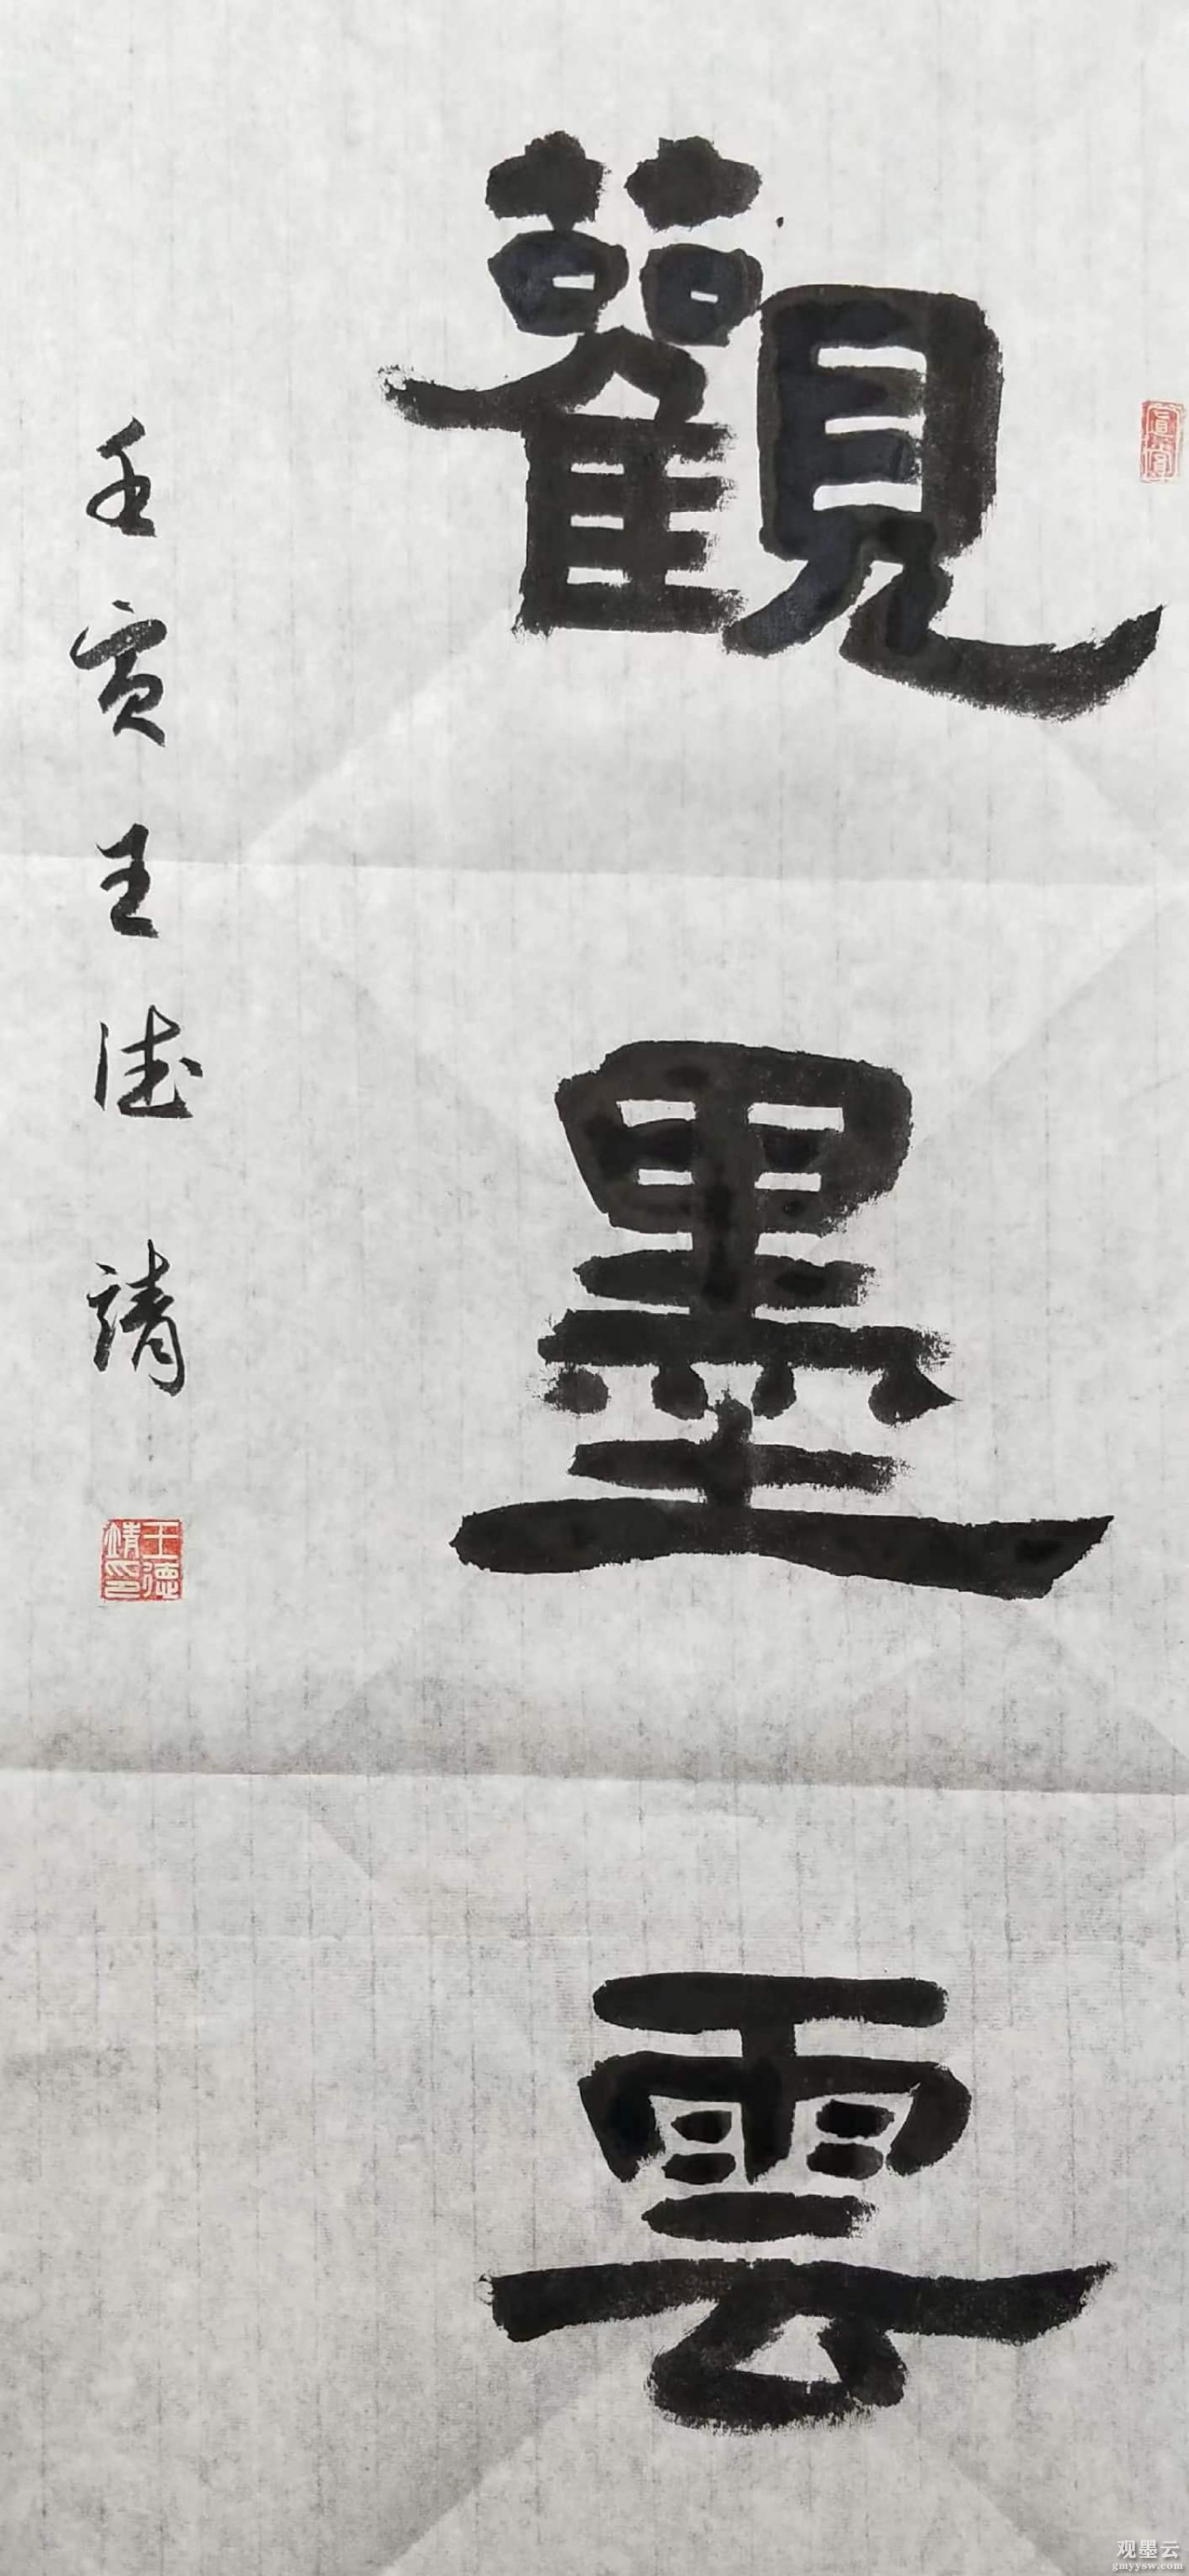 觀墨雲
壬寅王德靖
王德靖印
观墨云
gmyysw.com